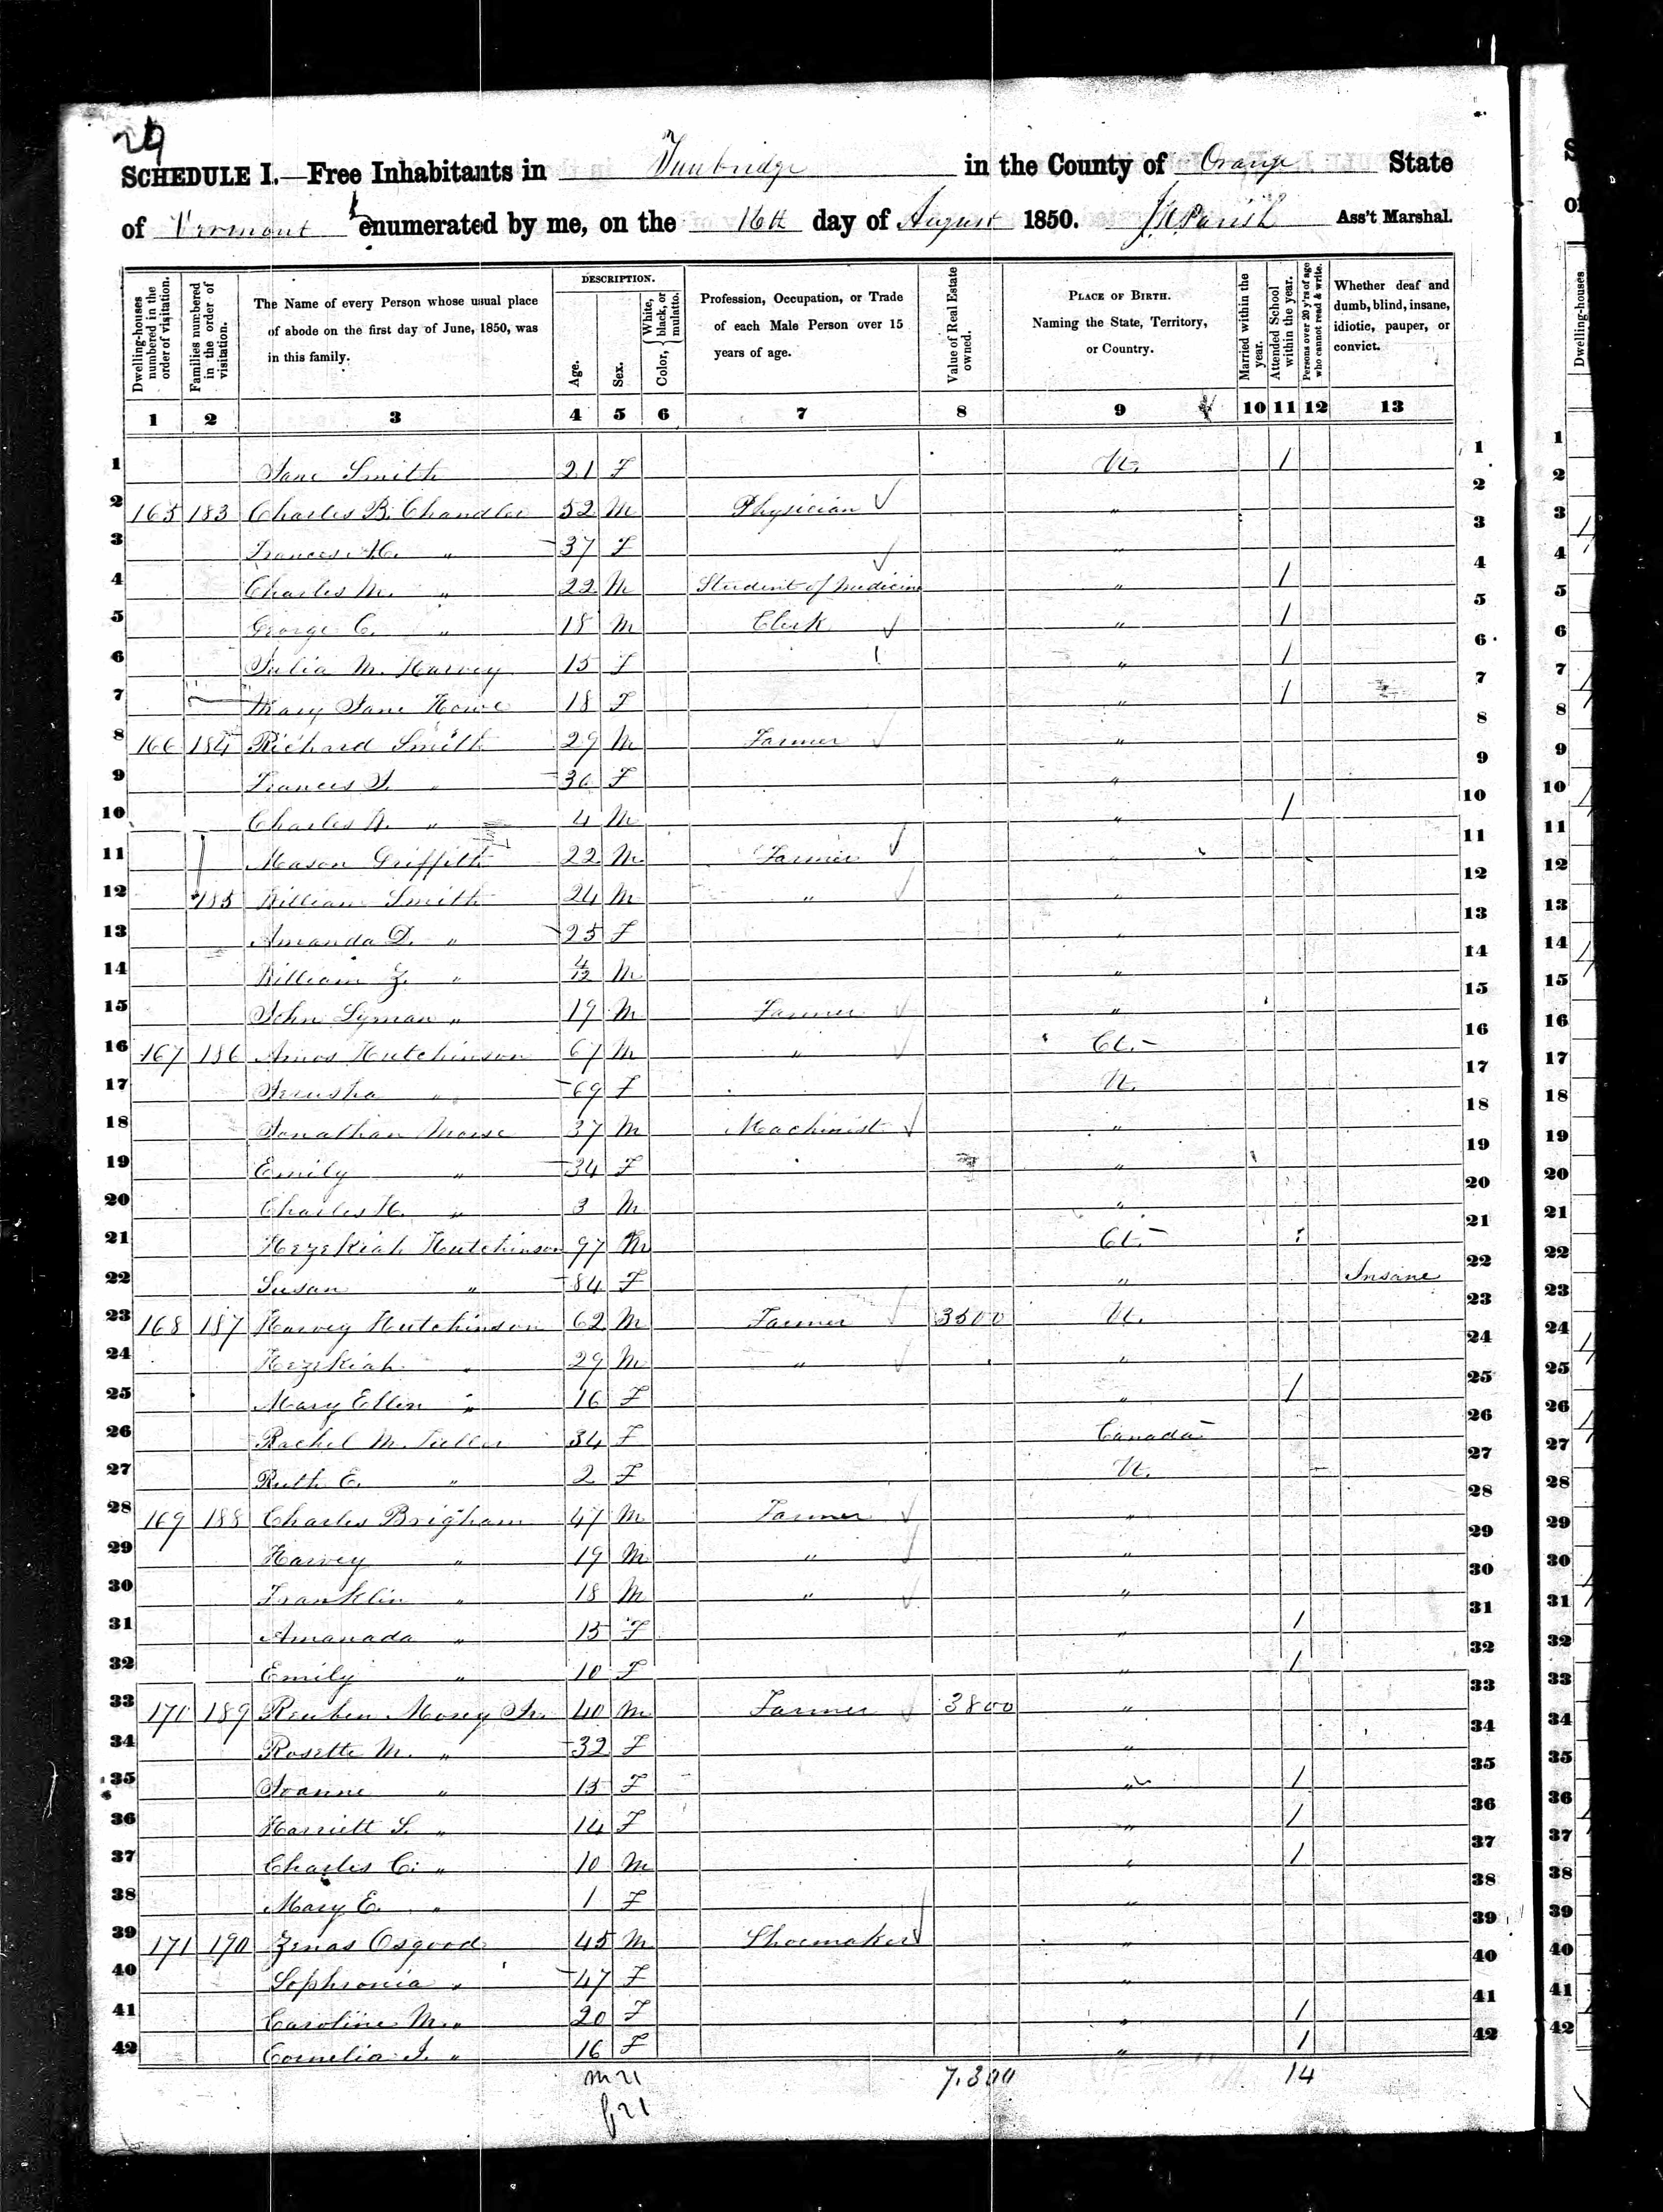 29
SCHEDULE I.—Free Inhabitants in Tunbridge in the County of Orange State
of Vermont enumerated by me, on the 16th day of August 1850. Ass't Marshal.
Dwelling-houses numbered in the order of visitation.
Families numbered in the order of visitation.
The Name of every Person whose usual place of abode on the first day of June, 1850, was in this family.
DESCRIPTION.
Age.
Sex.
Color, { White, black, or mulatto.
Profession, Occupation, or Trade of each Male Person over 15 years of age.
Value of Real Estate owned.
PLACE OF BIRTH. Naming the State, Territory, or Country.
Married within the year.
Attended School within the year.
Persons over 20 y'rs of age who cannot read & write.
Whether deaf and dumb, blind, insane, idiotic, pauper, or convict.
1 2 3 4 5 6 7 8 9 10 11 12 13
1 Jane Smith 21 F Vt. / 1
2 165 183 Charles B. Chandler 52 M Physician " 2
3 Frances H. " 37 F " 3
4 Charles M. " 22 M Student of Medicine " / 4
5 George C. " 18 M Clerk " / 5
6 Julia M. Harvey 15 F " / 6
7 Mary Jane Howe 18 F " / 7
8 166 184 Richard Smith 29 M Farmer " 8
9 Frances " 36 F " 9
10 Charles " 4 M " / 10
11 Mason Griffith 22 M Farmer " 11
12 185 William Smith 24 M " " 12
13 Amanda D. " 25 F " 13
14 William Z. " 4/12 M " 14
15 John Lyman " 19 M Farmer " 15
16 167 186 Amos Hutchinson 67 M " Ct. 16
17 Jerusha " 69 F Vt. 17
18 Jonathan Morse 37 M Machinist " 18
19 Emily " 34 F " 19
20 Charles H. " 3 M " 20
21 Hezekiah Hutchinson 97 M Ct. 21
22 Susan " 84 F " Insane 22
23 168 187 Harvey Hutchinson 62 M Farmer 3500 Vt. 23
24 Hezekiah " 29 M " " 24
25 Mary Ellen " 16 F " / 25
26 Rachel M. 34 F Canada 26
27 Ruth E. " 2 F Vt. 27
28 169 188 Charles Brigham 47 M Farmer " 28
29 Harvey " 19 M " " 29
30 Franklin " 18 M " " 30
31 Amanada " 15 F " / 31
32 Emily " 10 F " / 32
33 171 189 Reuben Mosey Jr. 40 M Farmer 3800 " 33
34 Rosette M. " 32 F " 34
35 Joanne " 15 F " / 35
36 Harriett S. " 14 F " / 36
37 Charles C. " 10 M " / 37
38 Mary E. " 1 F " 38
39 171 190 Zenas Osgood 45 M Shoemaker " 39
40 Sophronia " 47 F " 40
41 Caroline M. " 20 F " / 41
42 Cornelia J. " 16 F " / 42
m 21 7.300 14
f 21